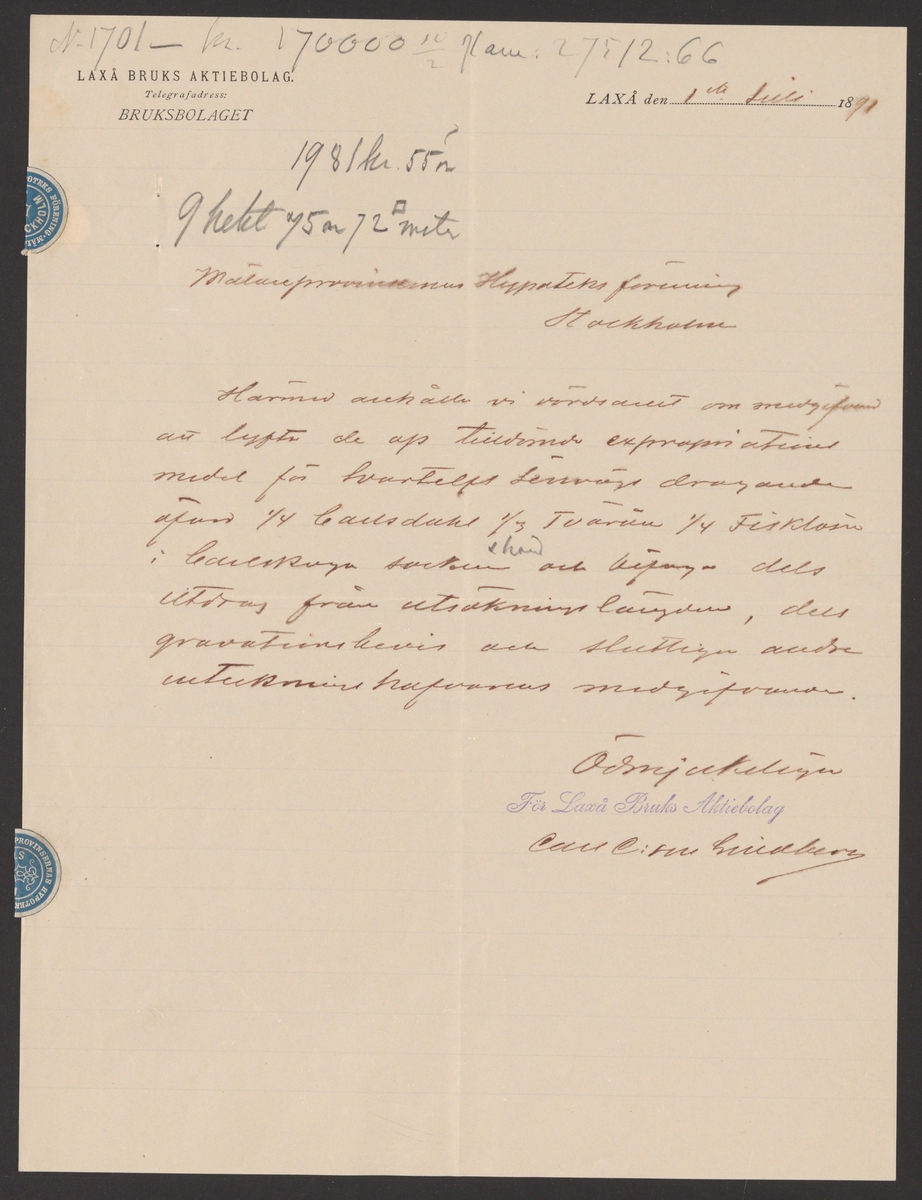 N. 1701 — kr. 170000 10/2 Kam: 27512:66
LAXÅ BRUKS AKTIEBOLAG.
Telegrafadress:
BRUKSBOLAGET
LAXÅ den 1sta Juli 1891
1981 kr. 55 ör
9 hekt 75 ar 72 □ meter
Mälareprovinsernas Hypoteksförening
Stockholm
Härmed anhålla vi vördsamt om medgifvand
att lyfta de oss tilldömda expropriations
medel för Svartelfs Jernvägs dragande
öfver 1/4 Carlsdahl 1/3 Tvärån 1/4 Fisklösen
i Carlskoga socken och bifoga dels
utdrag från utsökningslängden, dels
gravationsbevis och slutligen andra
inteckningshafvarens medgifvande.
Ödmjukeligen
För Laxå Bruks Aktiebolag
Carl C:son Lindberg